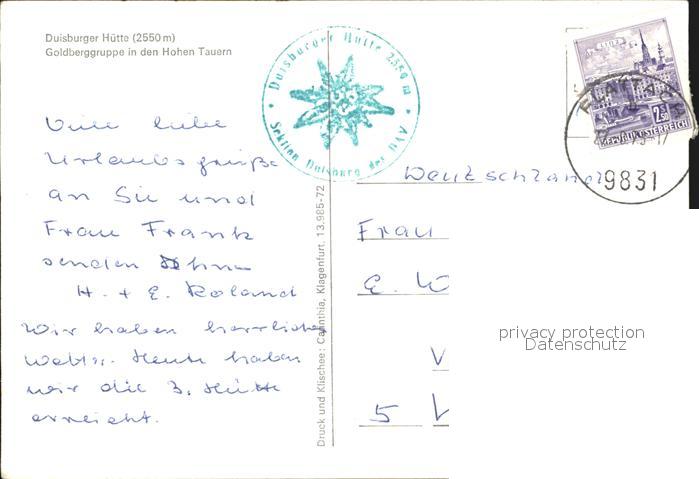 Duisburger Hütte (2550 m)
Goldberggruppe in den Hohen Tauern
Duisburger Hütte 2550 m
Sektion Duisburg des DAV
REPUBLIK ÖSTERREICH
9831
Viele liebe
Urlaubsgrüße
an Sie und
Frau Frank
senden Ihnen
H. + E. Roland
Wir haben herrliches
Wetter. Heute haben
wir die 3. Hütte
erreicht.
Druck und Klischee: Carinthia, Klagenfurt, 13.985-72
Deutschland
Frau
E. W
V
5
privacy protection
Datenschutz